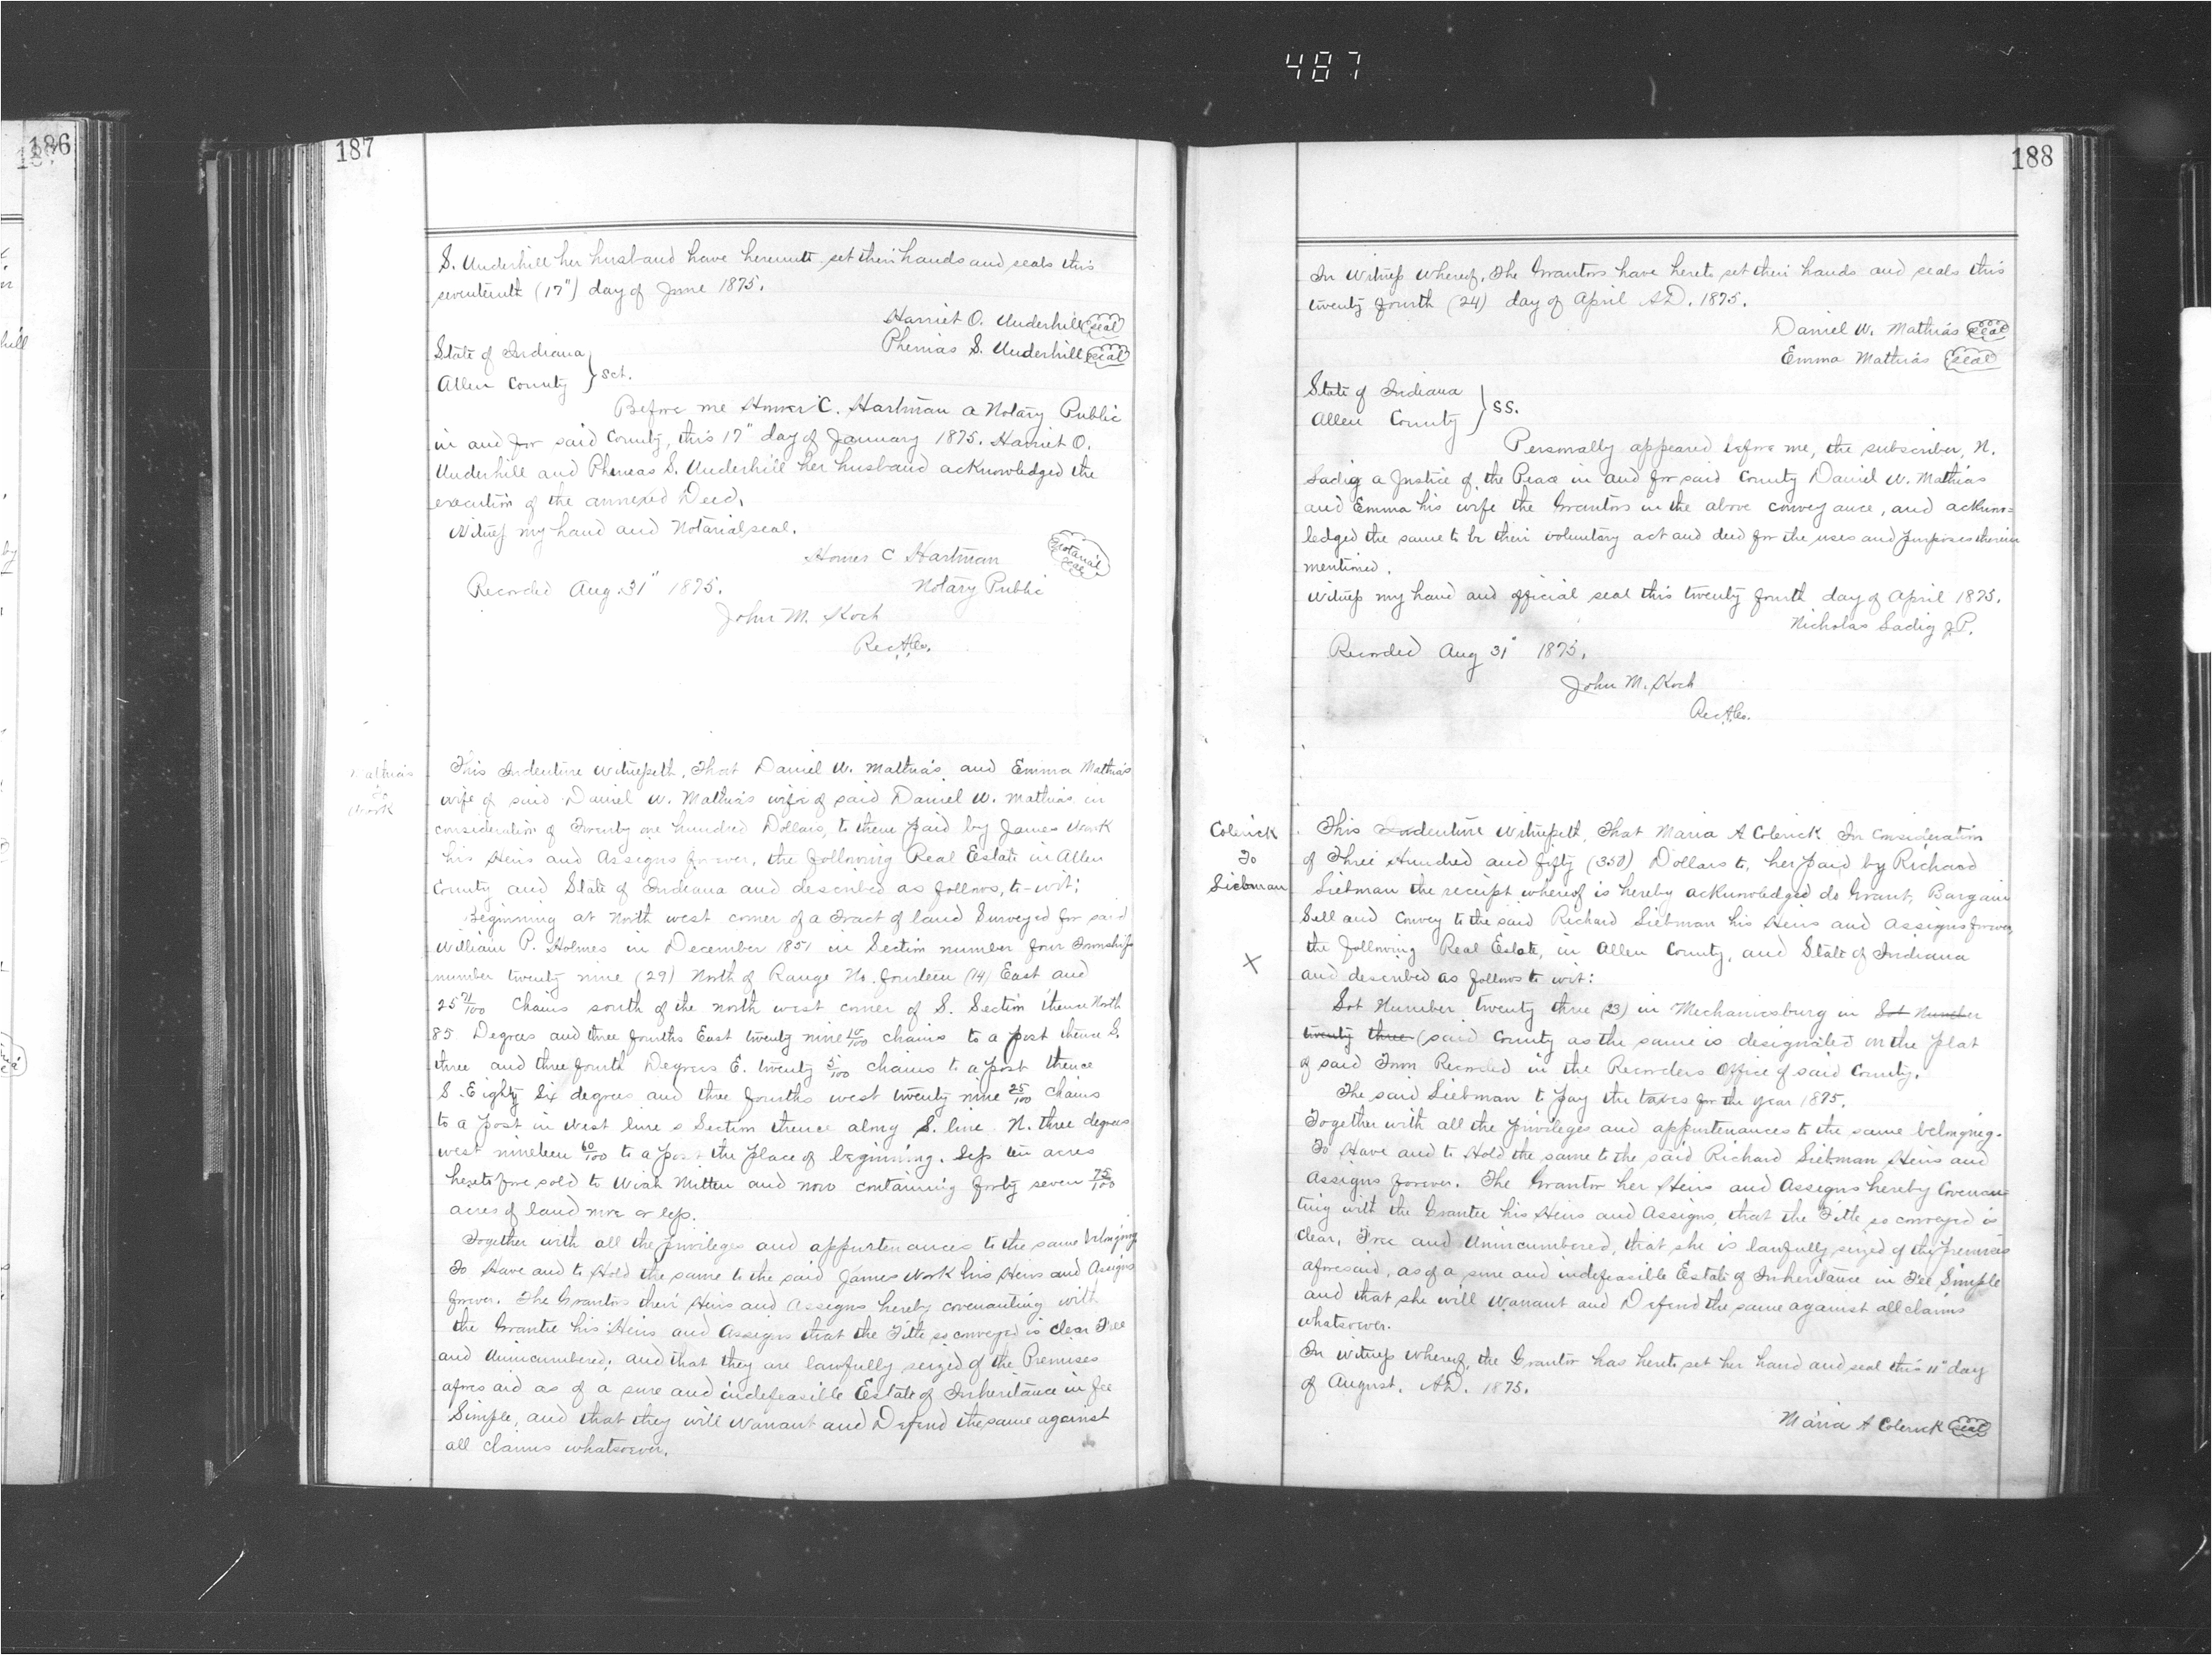 487
186
187
S. Underhill her husband have hereunto set their hands and seals this
seventeenth (17") day of June 1875.
Harriet O. Underhill seal
Phenias S. Underhill seal
State of Indiana
Allen County } sct.
Before me Homer C. Hartman a Notary Public
in and for said County, this 17" day of January 1875. Harriet O.
Underhill and Pheneas S. Underhill her husband acknowledged the
execution of the annexed Deed.
Witness my hand and Notarial seal.
Homer C Hartman
Notarial seal
Recorded Aug. 31" 1875.
Notary Public
John M. Koch
Rec.A.Co.
Mathias
to
Work
This Indenture Witnesseth, That Daniel W. Mathias, and Emma Mathias
wife of said Daniel W. Mathias wife of said Daniel W. Mathias in
consideration of Twenty one hundred Dollars, to them paid by James Work
his Heirs and Assigns forever, the following Real Estate in Allen
County and State of Indiana and described as follows, to-wit:
Beginning at North west corner of a Tract of land Surveyed for said
William P. Holmes in December 1851 in Section number four Township
number twenty nine (29) North of Range No. fourteen (14) East and
25 21/100 Chains south of the north west corner of S. Section thence North
85 Degrees and three fourths East twenty nine 10/100 chains to a post thence S.
three and three fourth Degrees E. twenty 5/100 chains to a post thence
S. Eighty Six degrees and three fourths west twenty nine 25/100 chains
to a post in West line s Section thence along S. line N. three degrees
west nineteen 60/100 to a post the place of beginning. Less ten acres
heretofore sold to Mitten and now containing forty seven 75/100
acres of land more or less.
Together with all the privileges and appurtenances to the same belonging
To Have and to Hold the same to the said James Work his Heirs and Assigns
forever. The Grantors their Heirs and Assigns hereby covenanting with
the Grantee his Heirs and Assigns that the Title so conveyed is clear Free
and Unincumbered, and that they are lawfully seized of the Premises
aforesaid as of a sure and indefeasible Estate of Inheritance in fee
Simple, and that they will Warrant and Defend the same against
all claims whatsoever.
188
In Witness Whereof, The Grantors have hereto set their hands and seals this
twenty fourth (24) day of April A.D. 1875.
Daniel W. Mathias seal
Emma Mathias seal
State of Indiana
Allen County } ss.
Personally appeared before me, the subscriber, N.
Ladig a Justice of the Peace in and for said County Daniel W. Mathias
and Emma his wife the Grantors in the above conveyance, and acknow=
ledged the same to be their voluntary act and deed for the uses and purposes therein
mentioned.
Witness my hand and official seal this twenty fourth day of April 1875.
Nicholas Ladig J.P.
Recorded Aug 31" 1875.
John M. Koch
Rec.A.Co.
Colerick
To
Siebman
X
This Indenture Witnesseth, That Maria A Colerick In Consideration
of Three Hundred and fifty (350) Dollars to, her paid by Richard
Siebman the receipt whereof is hereby acknowledged do Grant, Bargain
Sell and Convey to the said Richard Siebman his Heirs and Assigns forever
the following Real Estate, in Allen County, and State of Indiana
and described as follows to wit:
Lot Number twenty three (23) in Mechanicsburg in Lot Number
twenty three (said County as the same is designated on the plat
of said Town Recorded in the Recorders Office of said County.
The said Siebman to pay the taxes for the year 1875.
Together with all the privileges and appurtenances to the same belonging.
To Have and to Hold the same to the said Richard Siebman Heirs and
Assigns forever. The Grantor her Heirs and Assigns hereby Covenan=
ting with the Grantee his Heirs and Assigns, that the Title so conveyed is
clear, Free and Unincumbered, that she is lawfully seized of the premises
aforesaid, as of a sure and indefeasible Estate of Inheritance in Fee Simple
and that she will Warrant and Defend the same against all claims
whatsoever.
In Witness Whereof, the Grantor has hereto set her hand and seal this 11" day
of August. A.D. 1875.
Maria A Colerick seal